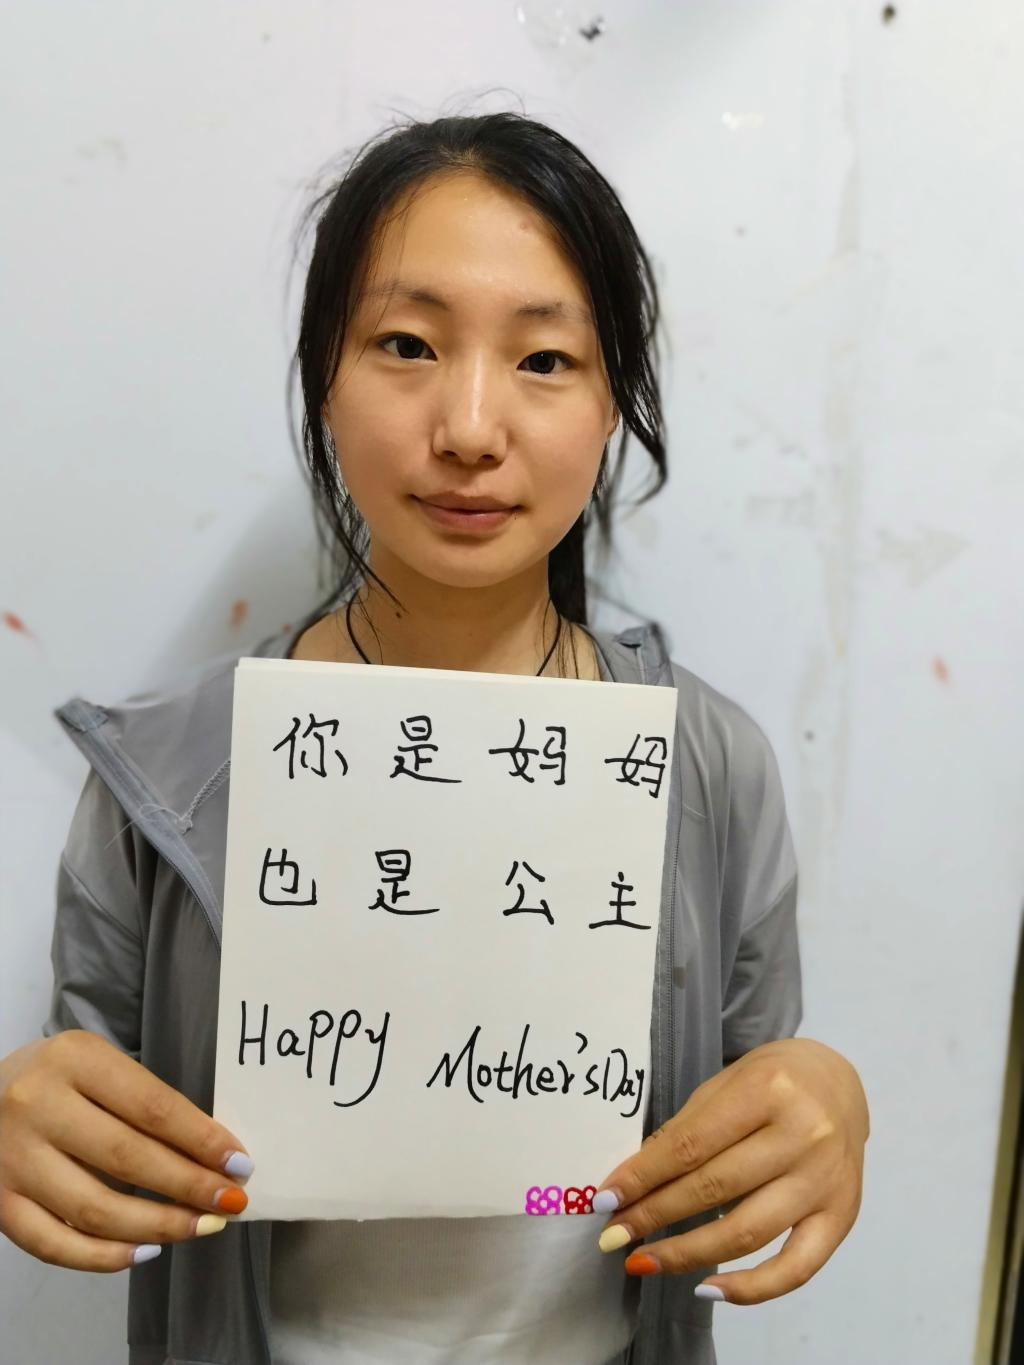 你是妈妈
也是公主
Happy Mother's Day